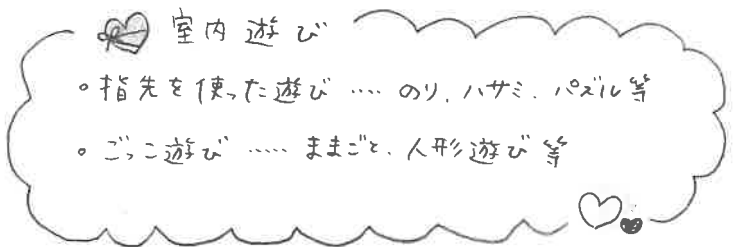 室内遊び
。指先を使った遊び …. のり、ハサミ、パズル等
。ごっこ遊び ….. ままごと、人形遊び等